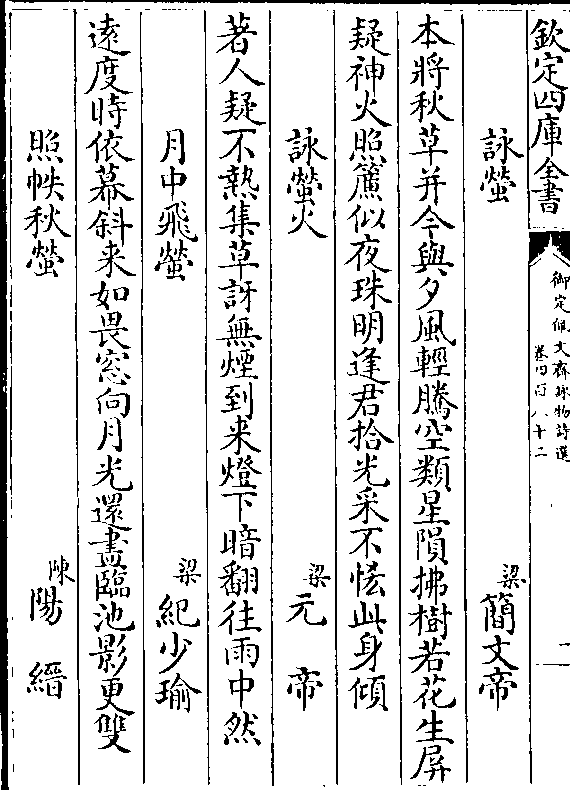 欽定四庫全書
御定佩文齋詠物詩選
卷四百八十二
二
詠螢
梁簡文帝
本將秋草并今與夕風輕騰空類星隕拂樹若花生屏
疑神火照簾似夜珠明逢君拾光采不恡此身傾
詠螢火
梁元帝
著人疑不熱集草訝無煙到来燈下暗翻往雨中然
月中飛螢
梁紀少瑜
逺度時依幕斜来如畏窓向月光還盡臨池影更雙
照帙秋螢
陳陽縉